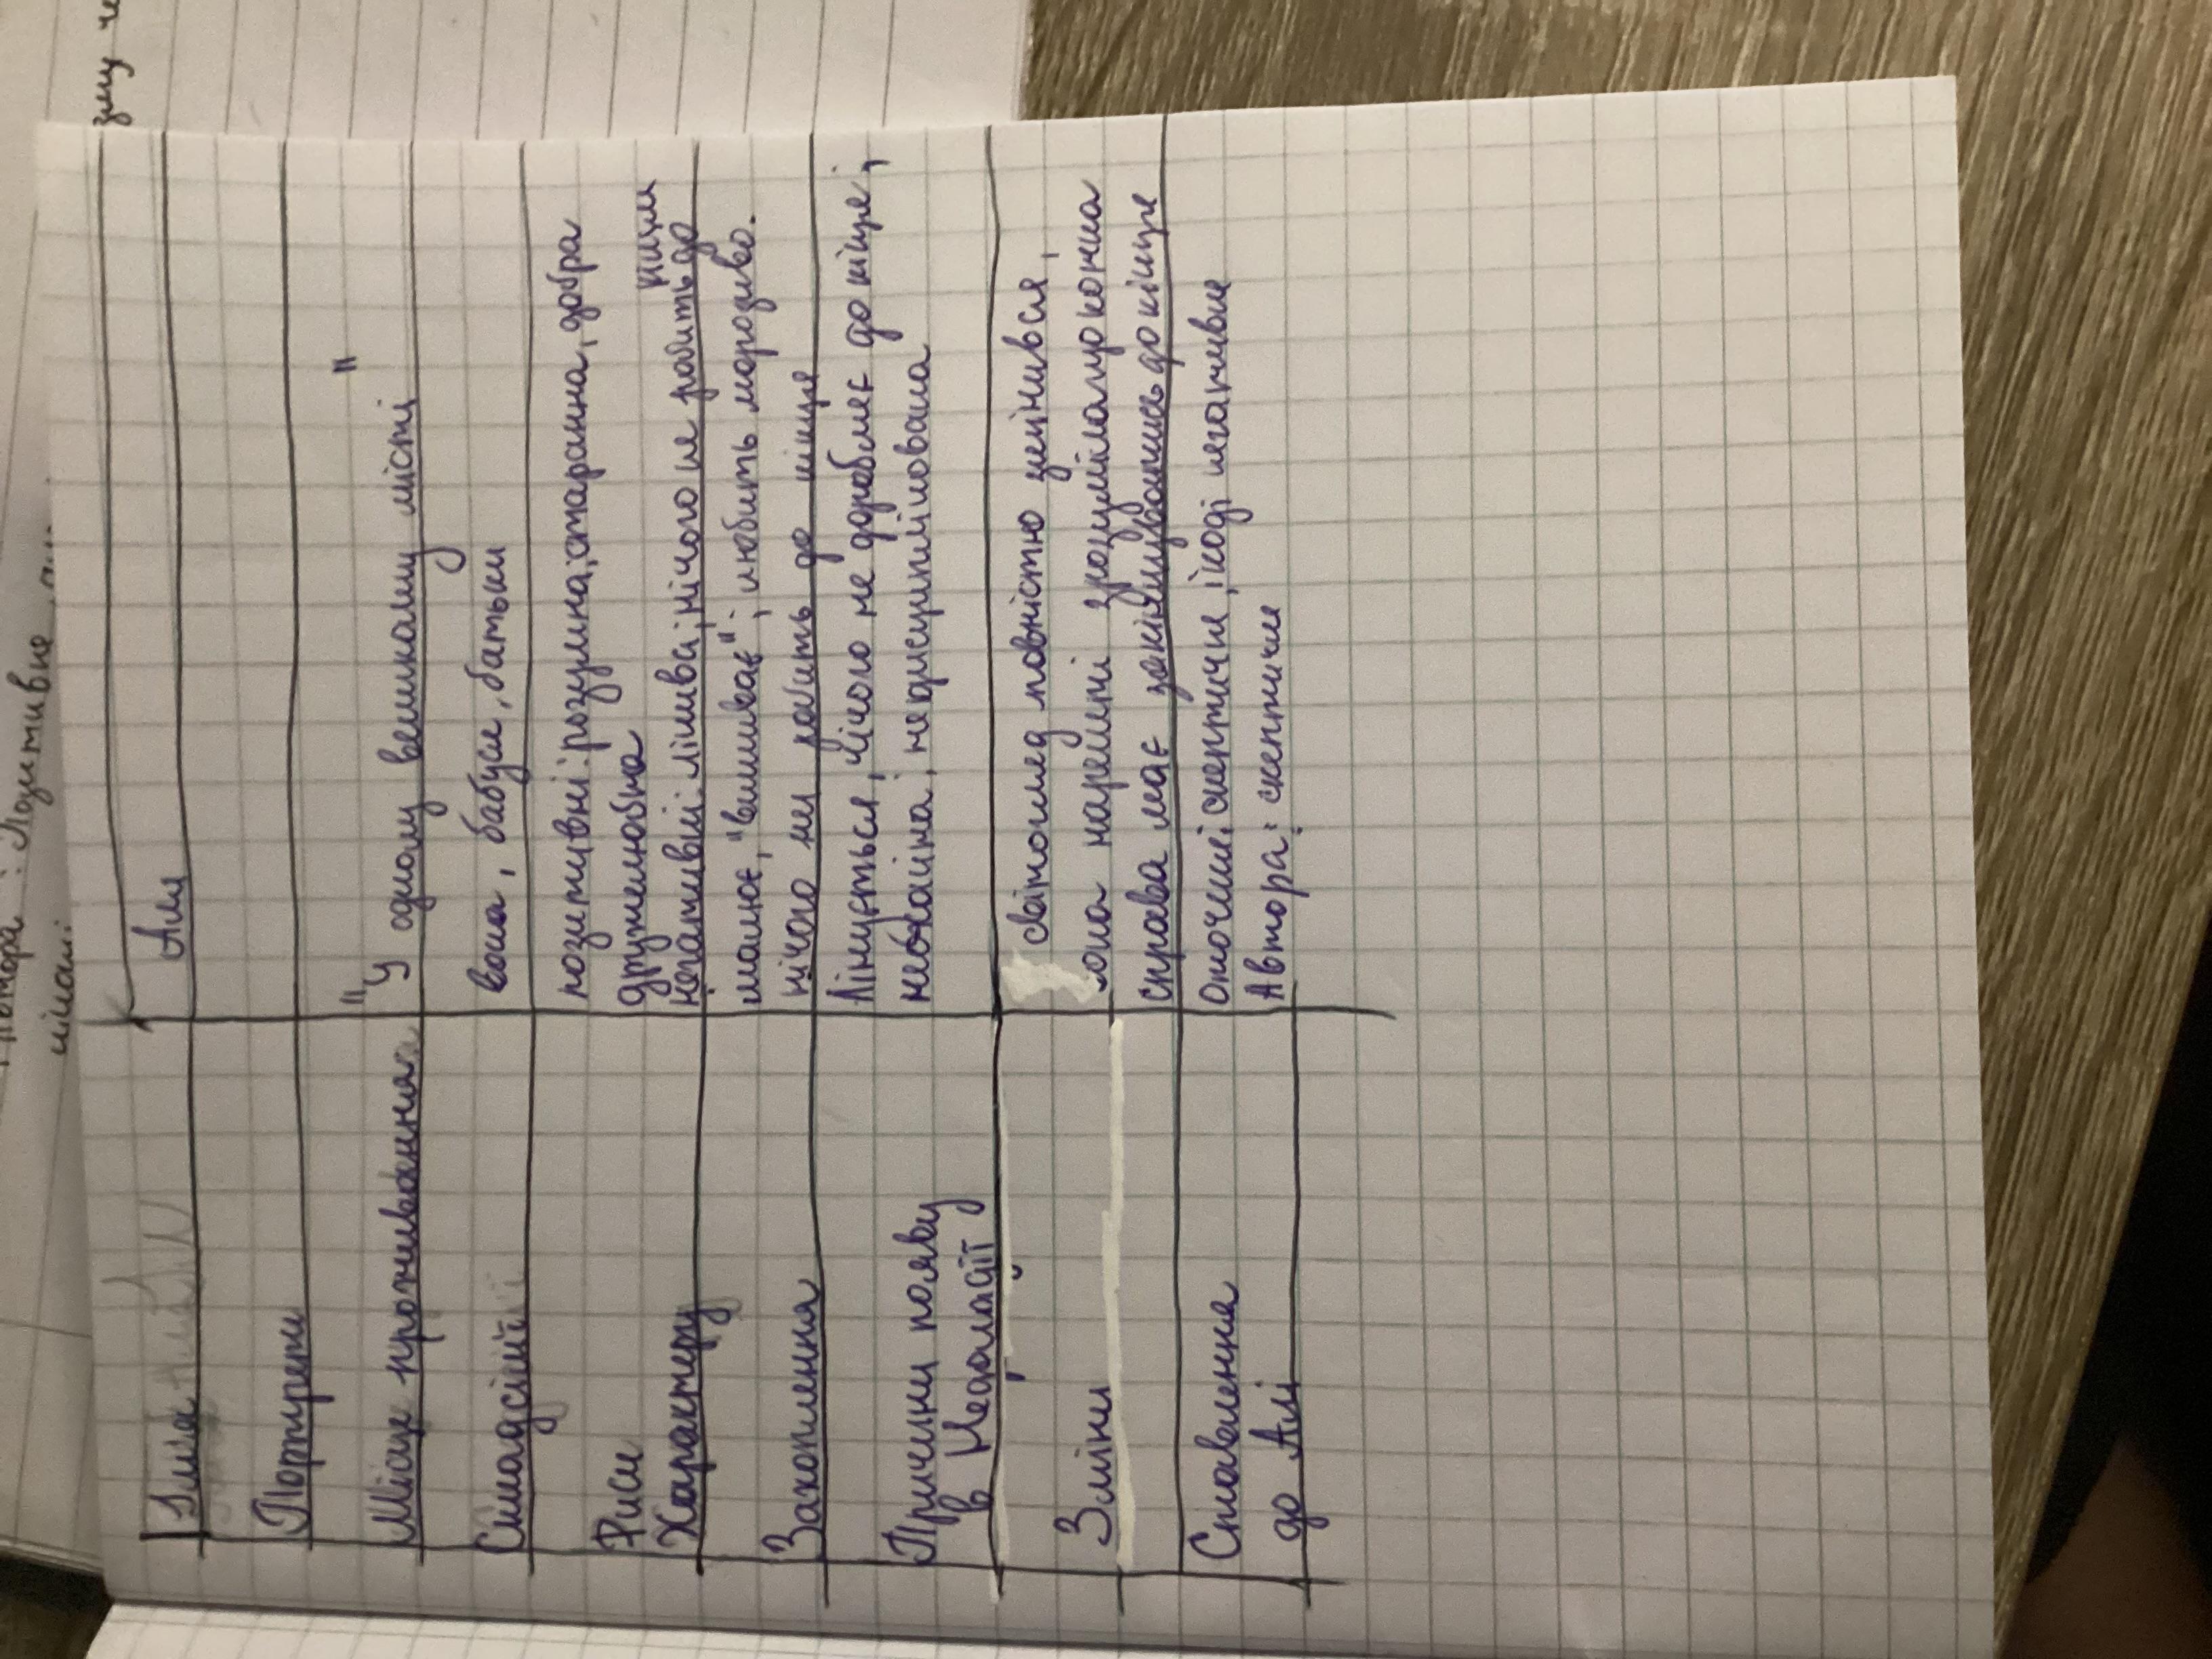 зиму че
Автора : Позитивне
Імʼя
Аля
Портрети
Місце проживання
"У одному великому місті"
Сімʼя
вона, бабуся, батьки
Риси
Характеру
позитивні: розумна, старанна, добра
дружелюбна
негативні: лінива, нічого не робить до
кінця
Захоплення
малює, "вишиває", любить морозиво.
нічого не робить до кінця
Причини появу
в Недоладії
Лінується, нічого не доробляє до кінце,
необайна, недисциплінована
Зміни
світогляд повністю змінився,
вона нарешті зрозуміла що кожна
справа має закінчуватись до кінце
Ставлення
до Алі
Оточені: скептичне, іноді негативне
Автора: скептичне